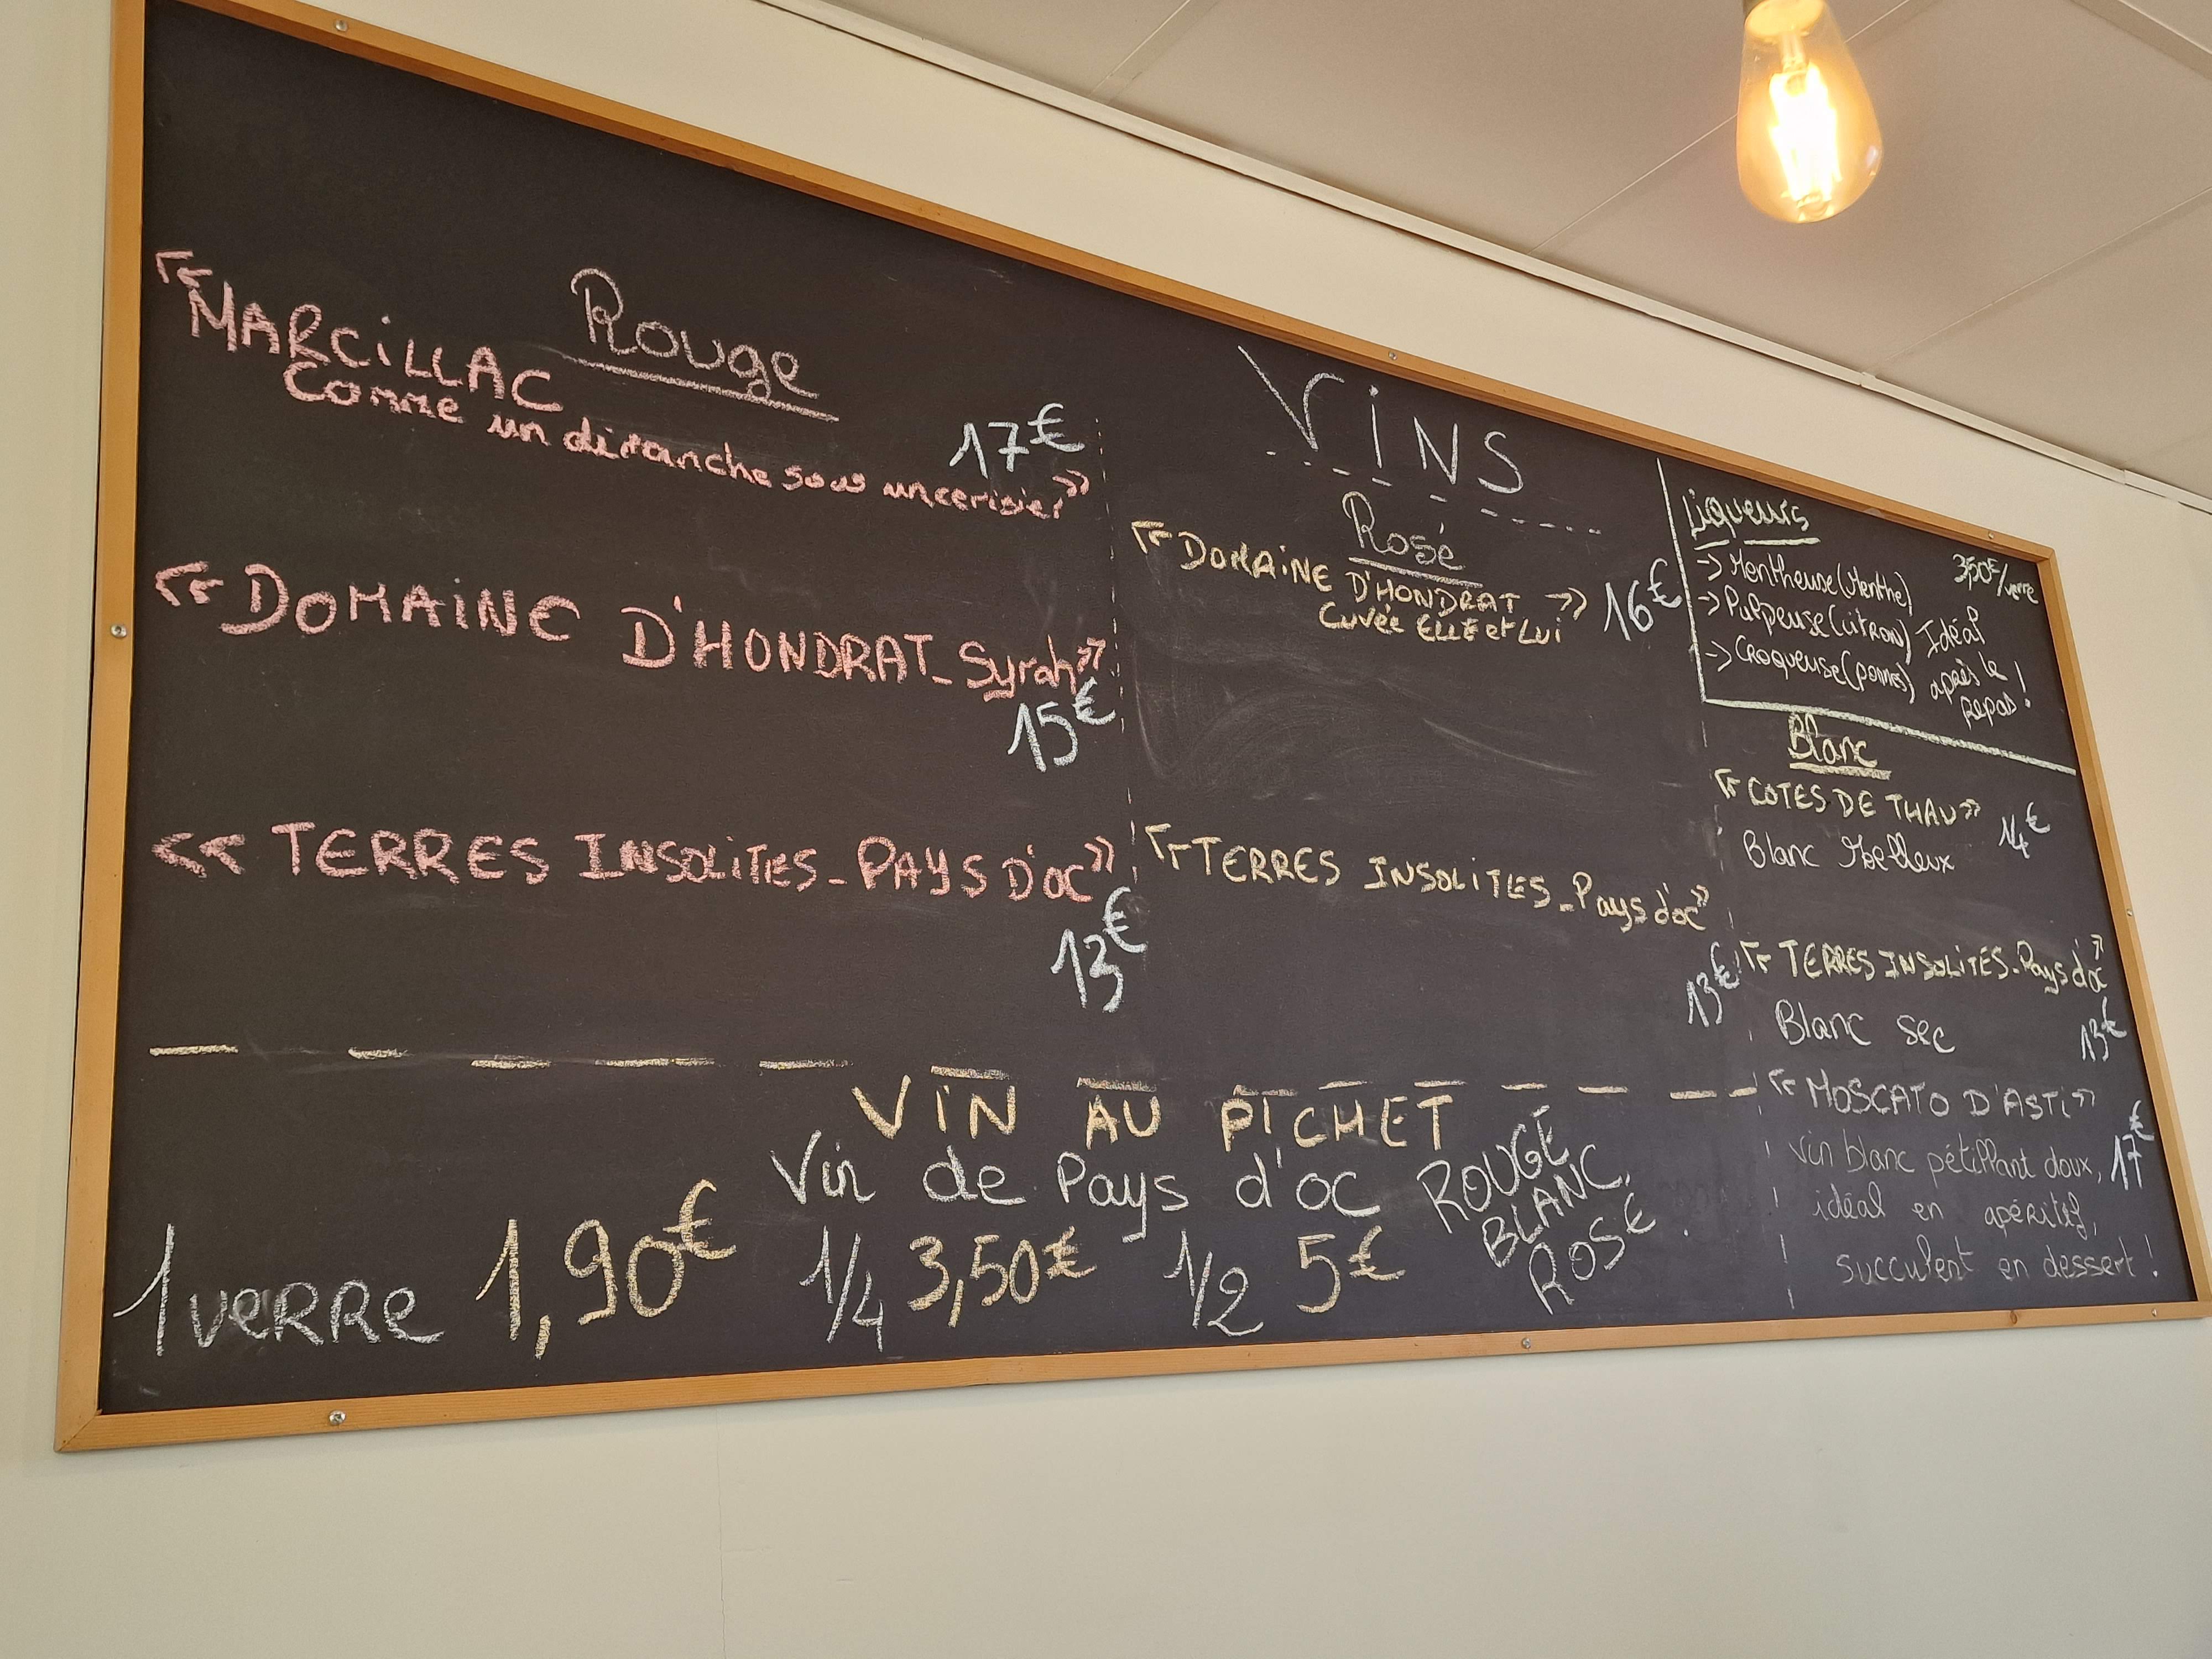 VINS
Rouge
« MARCILLAC
17€
Comme un dimanche sous un cerisier »
« DOMAINE D'HONDRAT_Syrah »
15€
« TERRES INSOLITES_PAYS D'OC »
13€
Rosé
« DOMAINE D'HONDRAT » 16€
Cuvée ELLE et LUI
« TERRES INSOLITES_Pays d'oc »
13€
Liqueurs
3,50€/verre
-> Mentheuse (Menthe)
-> Pulpeuse (citron)
-> CROQueuse (pommes)
Idéal
après le
repas !
Blanc
« COTES DE THAU » 14€
Blanc Moelleux
« TERRES INSOLITES_Pays d'oc »
Blanc sec 13€
« MOSCATO D'ASTI »
vin blanc pétillant doux, 17€
idéal en apéritif,
succulent en dessert !
VIN AU PICHET
Vin de Pays d'oc
ROUGE
BLANC,
ROSÉ
1 verre 1,90€ 1/4 3,50€ 1/2 5€